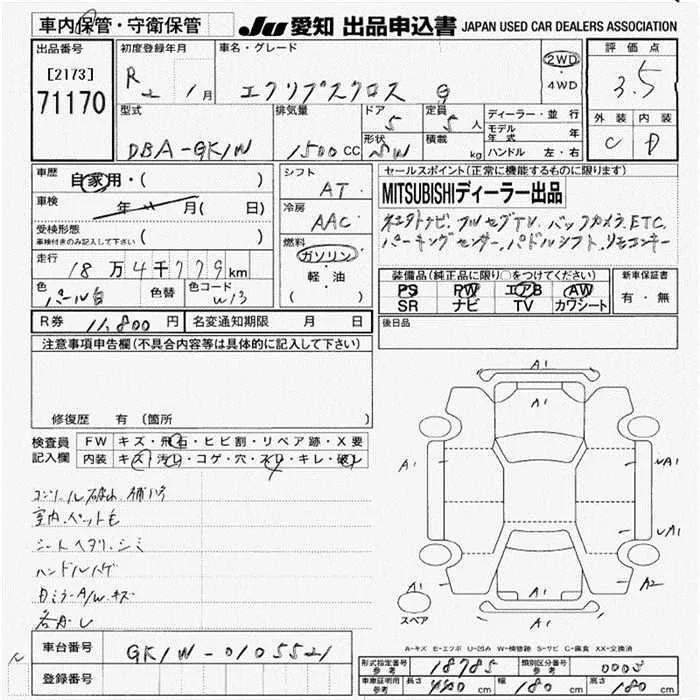 車内保管・守衛保管
JU 愛知 出品申込書 JAPAN USED CAR DEALERS ASSOCIATION
出品番号
[2173]
71170
初度登録年月
R2 1月
車名・グレード
エクリプスクロス G
2WD
4WD
評価点
3.5
外装 内装
C D
型式
DBA-GK1W
排気量
1500CC
ドア
5
定員
5人
形状
SW
積載
kg
ディーラー・並行
モデル年式 年
ハンドル 左・右
車歴
自家用・( )
車検
年 月( 日)
受検形態
車検付きのみ記入して下さい
( )
走行
18万4千779km
色
パール白
色替
色コード
W13
シフト
AT
冷房
AAC
燃料
ガソリン
軽・油
( )
セールスポイント(正常に機能するものに限ります)
MITSUBISHIディーラー出品
フルセグTV.バックカメラ.ETC.
パーキングセンサー.パドルシフト.リモコンキー
装備品(純正品に限り○をつけてください)
PS PW エアB AW
SR ナビ TV カワシート
新車保証書
有・無
R券 11,800円
名変通知期限 月 日
後日品
注意事項申告欄(不具合内容等は具体的に記入して下さい)
修復歴 有(箇所
検査員記入欄
FW キズ・飛石・ヒビ割・リペア跡・X要
内装 キズ・汚レ・コゲ・穴・スレ・キレ・破レ
コンソール破れ 補修
室内.ペット毛
シートヘタリ.シミ
ハンドルハゲ
ミラーA/W.キズ
A1
A1
A1
A1
A1
A1
A1
A2
A1
A1
スペア
A-キズ E-エクボ U-凹み W-補修跡 S-サビ C-腐食 XX-交換済
車台番号
GK1W-0105521
登録番号
型式指定番号 参考
18785
類別区分番号 参考
0003
車庫証明用 参考
長さ 440cm
幅 180cm
高さ 180cm